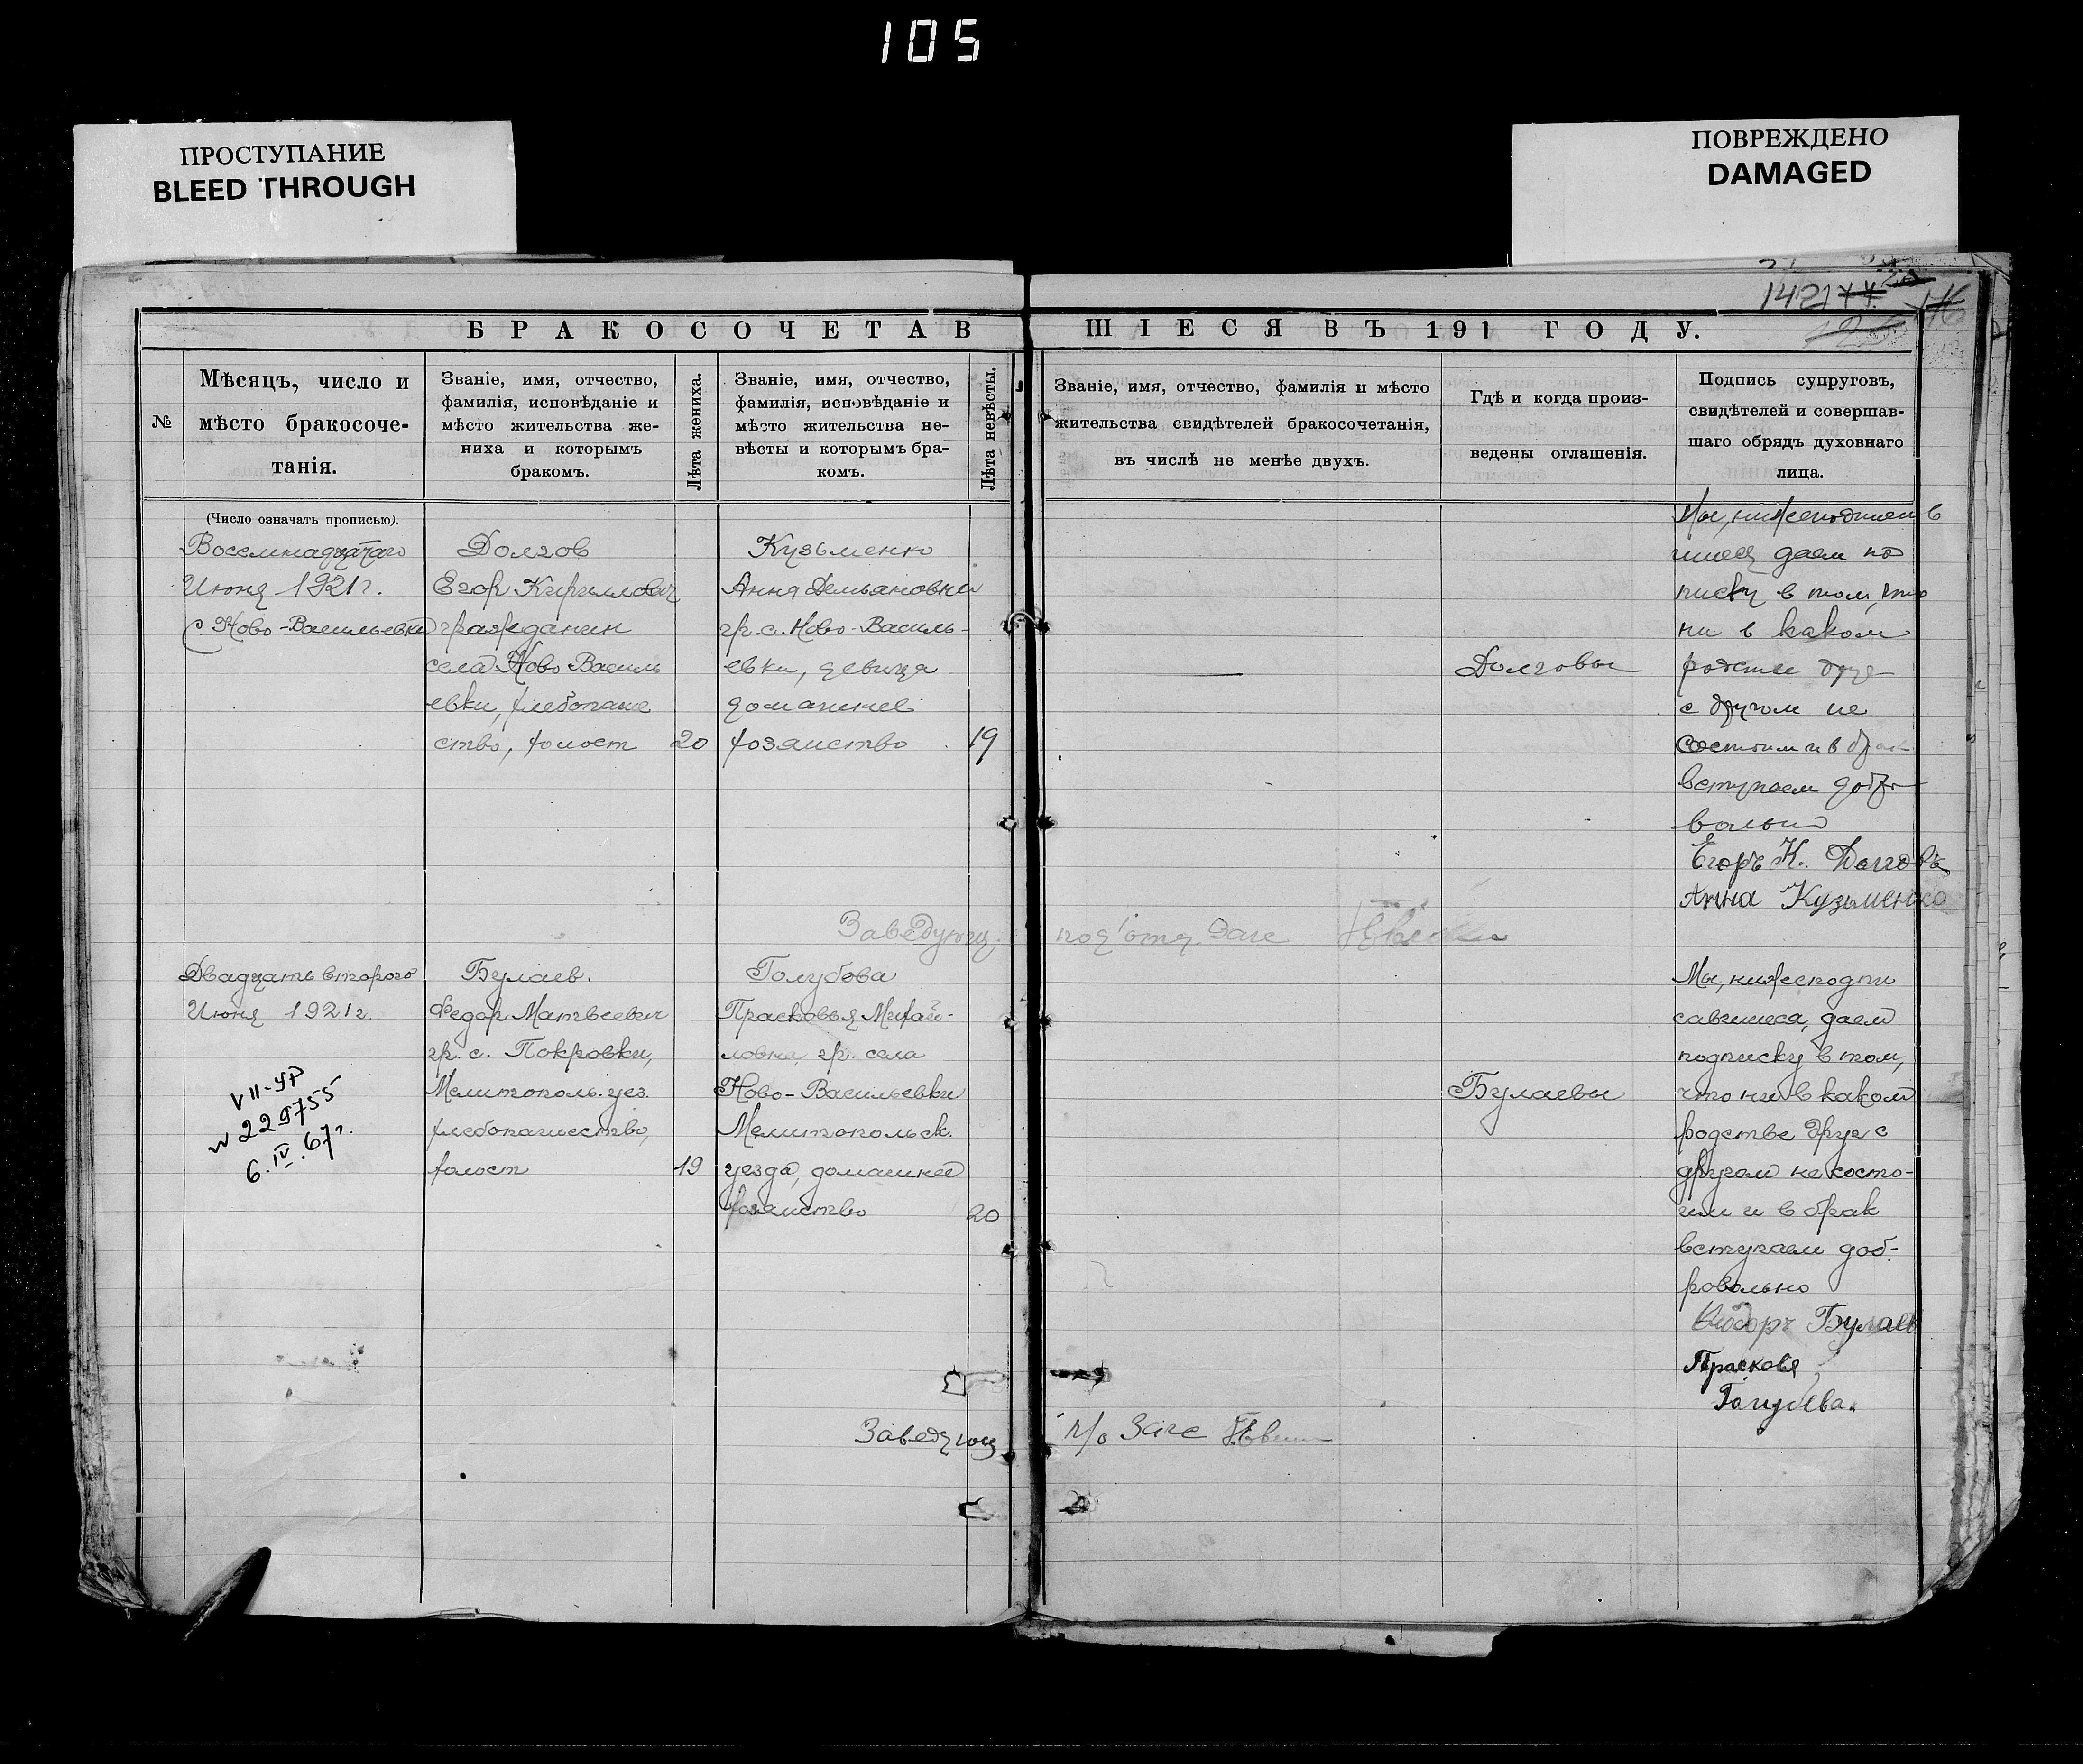 105
ПРОСТУПАНИЕ
BLEED THROUGH
ПОВРЕЖДЕНО
DAMAGED
142
БРАКОСОЧЕТАВ
ШІЕСЯ ВЪ 191 ГОДУ.
№
Мѣсяцъ, число и
мѣсто бракосоче-
танія.
Званіе, имя, отчество,
фамилія, исповѣданіе и
мѣсто жительства же-
ниха и которымъ
бракомъ.
Лѣта жениха.
Званіе, имя, отчество,
фамилія, исповѣданіе и
мѣсто жительства не-
вѣсты и которымъ бра-
комъ.
Лѣта невѣсты.
Званіе, имя, отчество, фамилія и мѣсто
жительства свидѣтелей бракосочетанія,
въ числѣ не менѣе двухъ.
Гдѣ и когда произ-
ведены оглашенія.
Подпись супруговъ,
свидѣтелей и совершав-
шаго обрядъ духовнаго
лица.
(Число означать прописью).
Восемнадцатаго
Июня 1921 г.
с. Ново-Васильевка
Долгов
Егор Кириллович
гражданин
села Ново Василь
евки, хлебопаше
ство, холост
20
Кузьменко
Анна Демьяновна
гр. с. Ново-Василь-
евки, девица
домашнее
хозяиство
19
Долговы
Мы,
даем по
писку в том, что
ни в каком
родстве друг
с другом не
состоим и в брак
вступаем добро
вольно
Егоръ К. Долговъ
Анна Кузьменко
Заведующ. под'отд. Загс
Двадцать второго
Июня 1921 г.
VII-УР
№ 229755
6.IV.67г.
Булаев.
Федор Матвеевич
гр. с. Покровки,
Мелитополь. уез.
хлебопашество,
холост
19
Голубова
Прасковья Михай-
ловна, гр. села
Ново-Васильевки
Мелитопольск.
уезда, домашнее
хозяиство
20
Булаевы
Мы, нижеподпи
савшиеся, даем
подписку в том,
что ни в каком
родстве друг с
другом не состо-
им и в брак
вступаем доб-
ровольно
Булаев
Прасковя
Голубева.
Заведующ п/о Загс